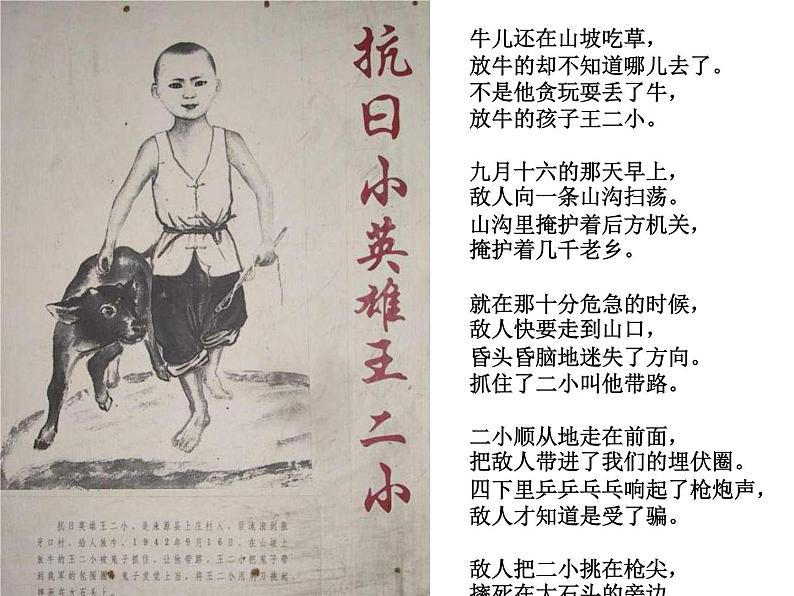 抗日小英雄王二小
抗日英雄王二小，是涞源县上庄村人，后流浪到狼
牙口村，给人放牛，1942年9月16日，在山坡上
放牛的王二小被鬼子抓住，让他带路，王二小把鬼子带
到我军的包围圈，鬼子发觉上当，将王二小用刺刀挑起，
摔死在大石头上。
牛儿还在山坡吃草，
放牛的却不知道哪儿去了。
不是他贪玩耍丢了牛，
放牛的孩子王二小。
九月十六的那天早上，
敌人向一条山沟扫荡。
山沟里掩护着后方机关，
掩护着几千老乡。
就在那十分危急的时候，
敌人快要走到山口，
昏头昏脑地迷失了方向。
抓住了二小叫他带路。
二小顺从地走在前面，
把敌人带进了我们的埋伏圈。
四下里乒乒乓乓响起了枪炮声，
敌人才知道是受了骗。
敌人把二小挑在枪尖，
摔死在大石头的旁边